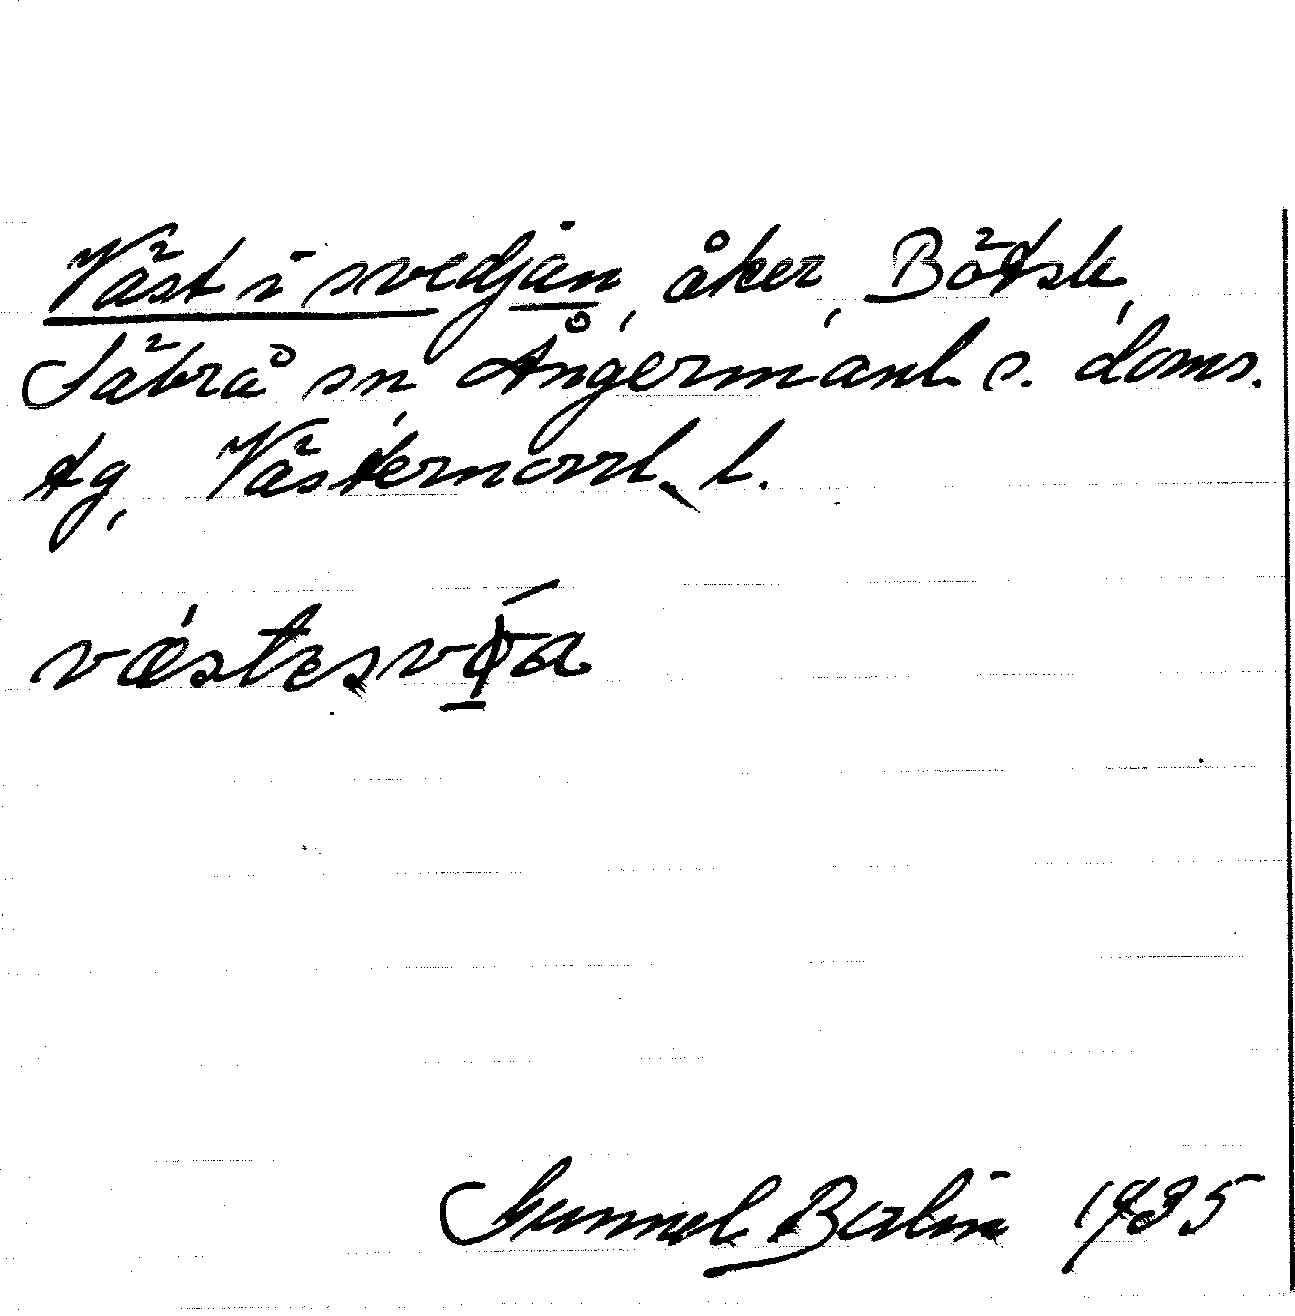 Väst i svedjan, åker, Bötsle,
Säbrå sn, Ångermanl. s. doms.
tg, Västernorrl. l.
Gunnel Berlin 1935